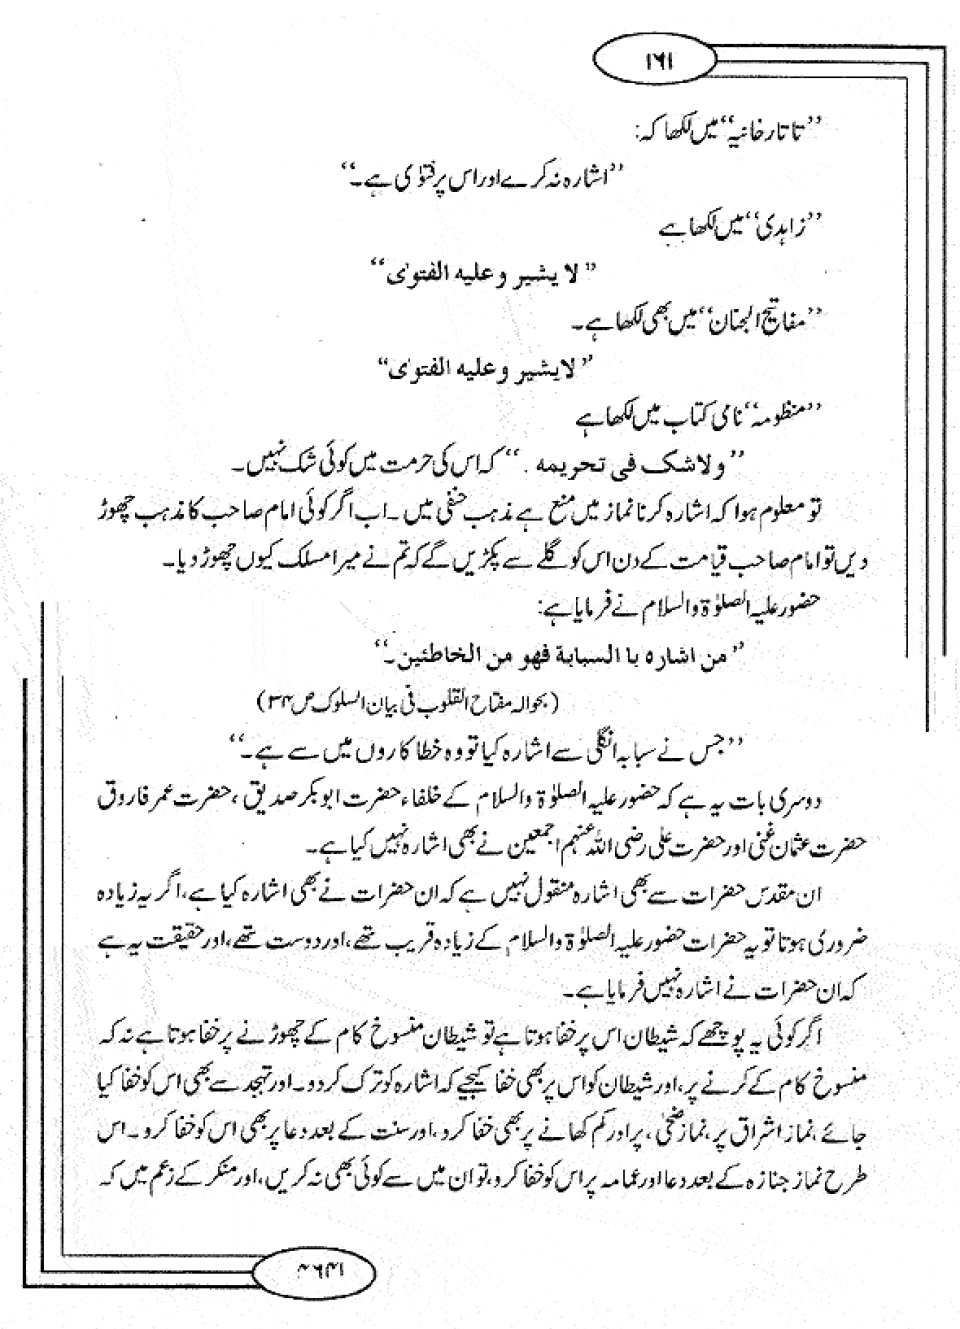 ۱۶۱
’’تاتارخانیہ‘‘ میں لکھا کہ:
’’اشارہ نہ کرے اور اس پر فتوٰی ہے۔‘‘
’’زاہدی‘‘ میں لکھا ہے
’’لا یشیر و علیه الفتوٰی‘‘
’’مفاتیح الجنان‘‘ میں بھی لکھا ہے۔
’’لایشیر و علیه الفتوٰی‘‘
’’منظومہ‘‘ نامی کتاب میں لکھا ہے
’’ولاشک فی تحریمه .‘‘ کہ اس کی حرمت میں کوئی شک نہیں۔
تو معلوم ہوا کہ اشارہ کرنا نماز میں منع ہے مذہب حنفی میں۔ اب اگر کوئی امام صاحب کا مذہب چھوڑ
دیں تو امام صاحب قیامت کے دن اس کو گلے سے پکڑیں گے کہ تم نے میرا مسلک کیوں چھوڑ دیا۔
حضور علیہ الصلوٰۃ والسلام نے فرمایا ہے:
’’من اشاره با السبابة فهو من الخاطئین۔‘‘
(بحوالہ مفتاح القلوب فی بیان السلوک ص ۳۴)
’’جس نے سبابہ انگلی سے اشارہ کیا تو وہ خطا کاروں میں سے ہے۔‘‘
دوسری بات یہ ہے کہ حضور علیہ الصلوٰۃ والسلام کے خلفاء حضرت ابوبکر صدیق، حضرت عمر فاروق
حضرت عثمان غنی اور حضرت علی رضی اللہ عنہم اجمعین نے بھی اشارہ نہیں کیا ہے۔
ان مقدس حضرات سے بھی اشارہ منقول نہیں ہے کہ ان حضرات نے بھی اشارہ کیا ہے، اگر یہ زیادہ
ضروری ہوتا تو یہ حضرات حضور علیہ الصلوٰۃ والسلام کے زیادہ قریب تھے، اور دوست تھے، اور حقیقت یہ ہے
کہ ان حضرات نے اشارہ نہیں فرمایا ہے۔
اگر کوئی یہ پوچھے کہ شیطان اس پر خفا ہوتا ہے تو شیطان منسوخ کام کے چھوڑنے پر خفا ہوتا ہے نہ کہ
منسوخ کام کے کرنے پر، اور شیطان کو اس پر بھی خفا کیجیے کہ اشارہ کو ترک کر دو۔ اور تہجد سے بھی اس کو خفا کیا
جائے، نماز اشراق پر، نماز ضحٰی، پر اور کم کھانے پر بھی خفا کرو، اور سنت کے بعد دعا پر بھی اس کو خفا کرو۔ اس
طرح نماز جنازہ کے بعد دعا اور عمامہ پر اس کو خفا کرو، تو ان میں سے کوئی بھی نہ کریں، اور منکر کے زعم میں کہ